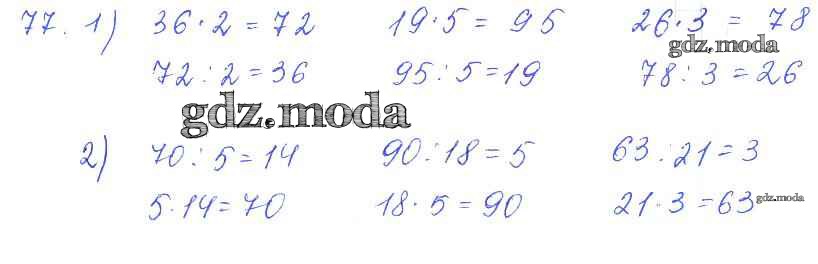 77. 1) 36·2 = 72 19·5 = 95 26·3 = 78
gdz.moda
72:2=36 95:5=19 78:3=26
gdz.moda
2) 70:5=14 90:18=5 63:21=3
5·14=70 18·5=90 21·3=63 gdz.moda